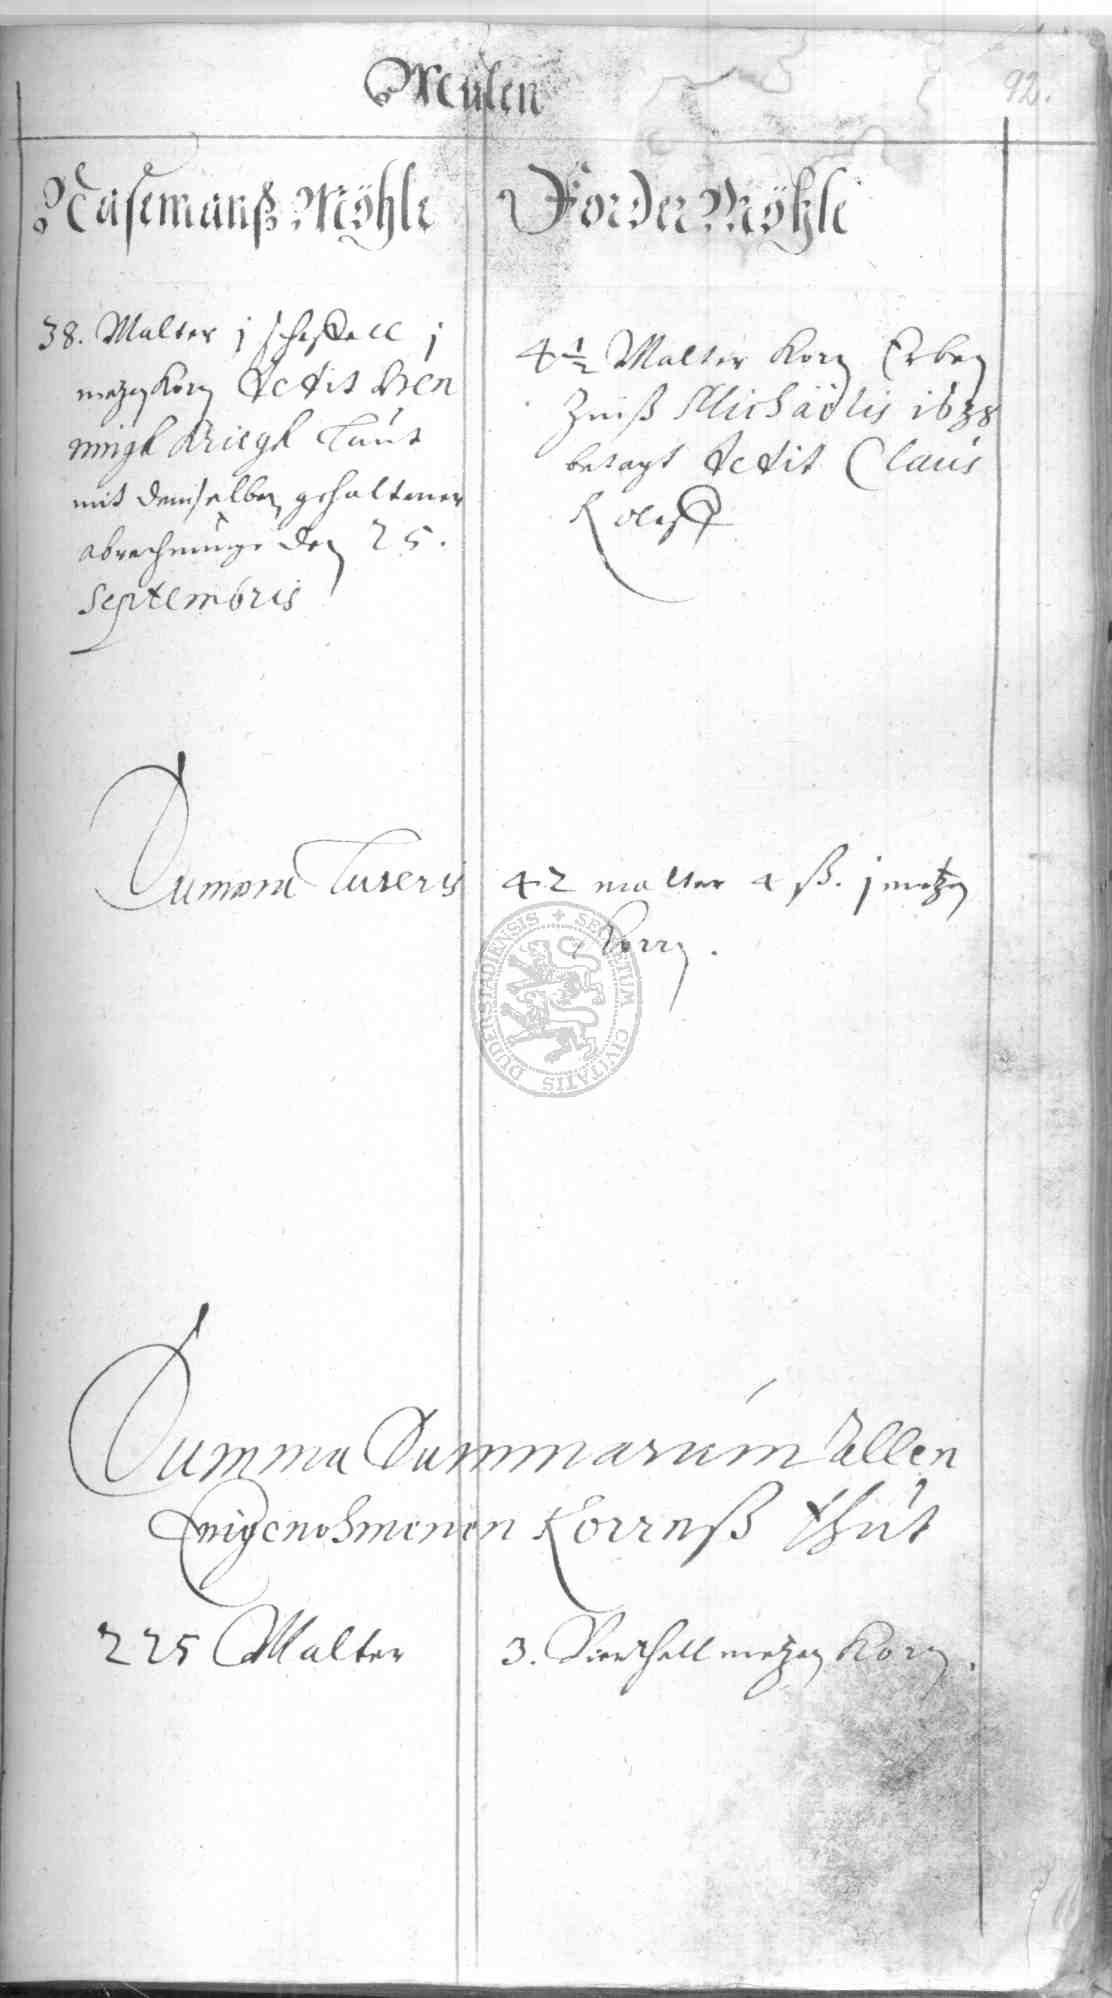 Mulen
92.
Nasemanß Möhle
38. Malter j scheffell j
metzen Korn dedit Hen
ningk Kriegk Laut
mit demselben gehaltener
abrechnunge den 25.
Septembris
Forder Möhle
4 1/2 Malter Korn Erben
Zinß Michaëlis 1638
betagt dedit Claus
Roleff
Summa Lateris 42 malter 4 ß. j metzen
Korn.
Summa Summarum Allen
Eingenohmenen Kornß thut
225 Malter 3. Vierthell metzen Korn.
SECRETUM CIVITATIS DUDERSTADIENSIS